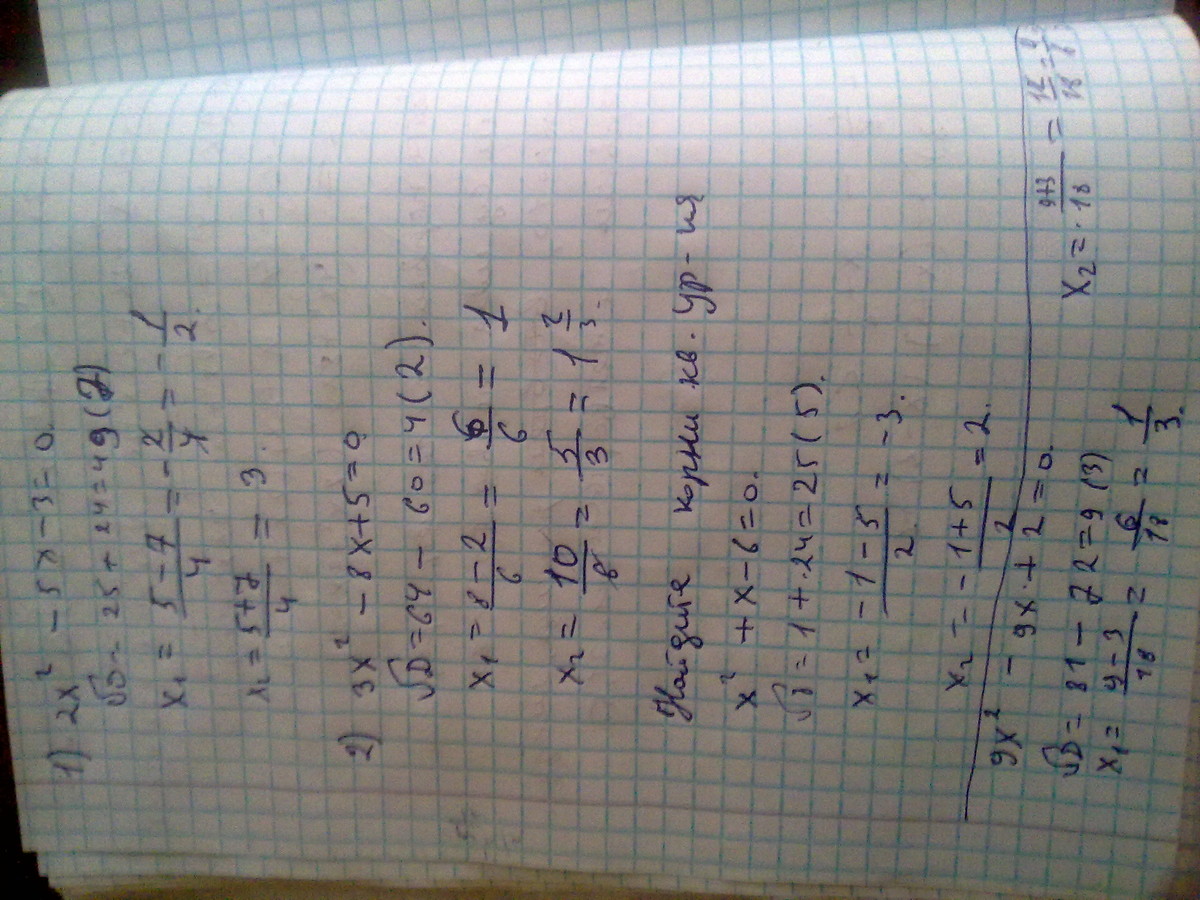 1) 2x² - 5x - 3 = 0.
√D = 25 + 24 = 49 (7)
x₁ = (5-7)/4 = -2/4 = -1/2.
x₂ = (5+7)/4 = 3.
2) 3x² - 8x + 5 = 0
√D = 64 - 60 = 4 (2).
x₁ = (8-2)/6 = 6/6 = 1
x₂ = 10/6 = 5/3 = 1 2/3.
Найдите корни кв. ур-ия
x² + x - 6 = 0.
√D = 1 + 24 = 25 (5).
x₁ = (-1-5)/2 = -3.
x₂ = (-1+5)/2 = 2.
9x² - 9x + 2 = 0.
√D = 81 - 72 = 9 (3)
x₁ = (9-3)/18 = 6/18 = 1/3.
x₂ = (9+3)/18 = 12/18